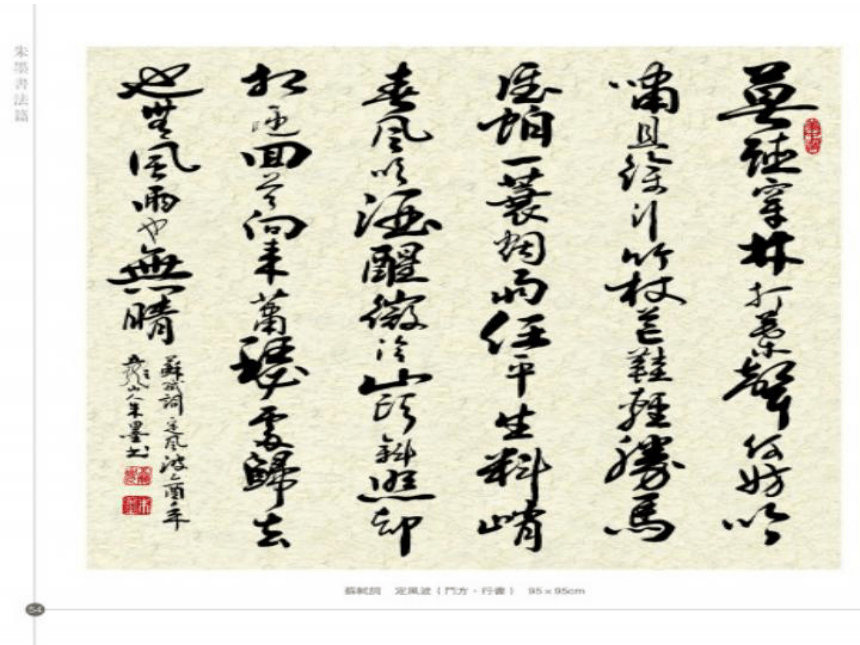 朱墨書法篇
莫聽穿林打葉聲何妨吟
嘯且徐行竹杖芒鞋輕勝馬
誰怕一蓑烟雨任平生料峭
春風吹酒醒微冷山頭斜照却
相迎回首向來蕭瑟處歸去
也無風雨也無晴
蘇軾詞定風波乙酉年
山人朱墨書
蘇軾詞 定風波（鬥方·行書） 95×95cm
54